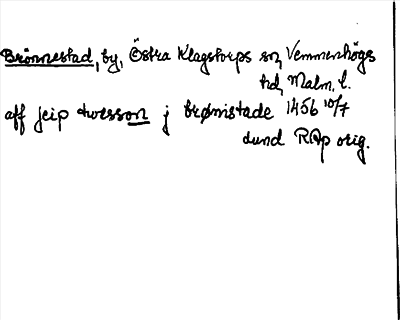 Brönnestad, by, Östra Klagstorps sn, Vemmenhögs
hd, Malm. l.
aff jeip twesson j brønistade 1456 10/7
Lund RAp orig.